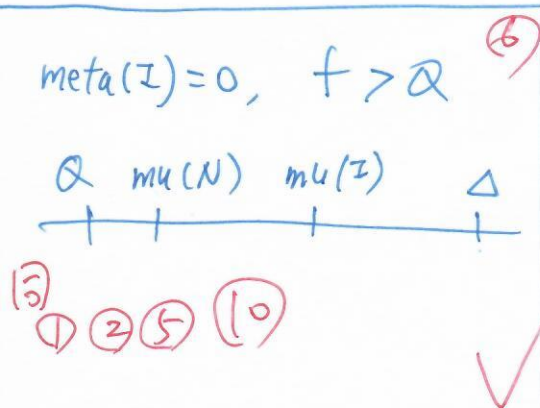 ⑥
meta(I)=0, f>Q
Q mu(N) mu(I) Δ
① ② ⑤ ⑩